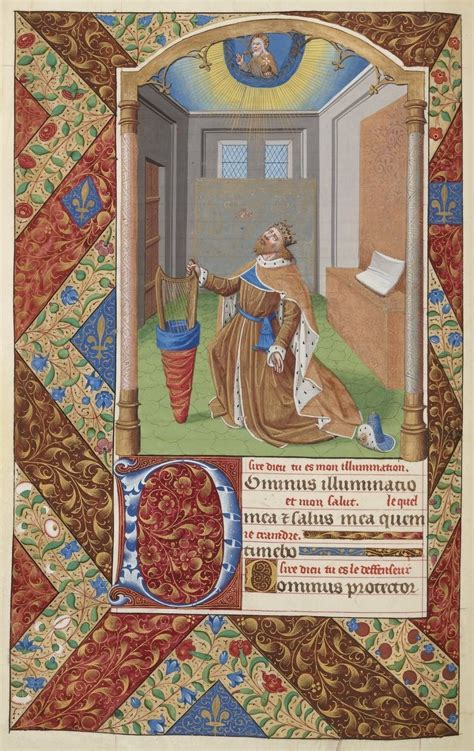 Sire dieu tu es mon illumination.
Dominus illuminatio
et mon salut. le quel
mea & salus mea quem
re craindre.
timebo
Sire dieu tu es le deffenseur
Dominus protector